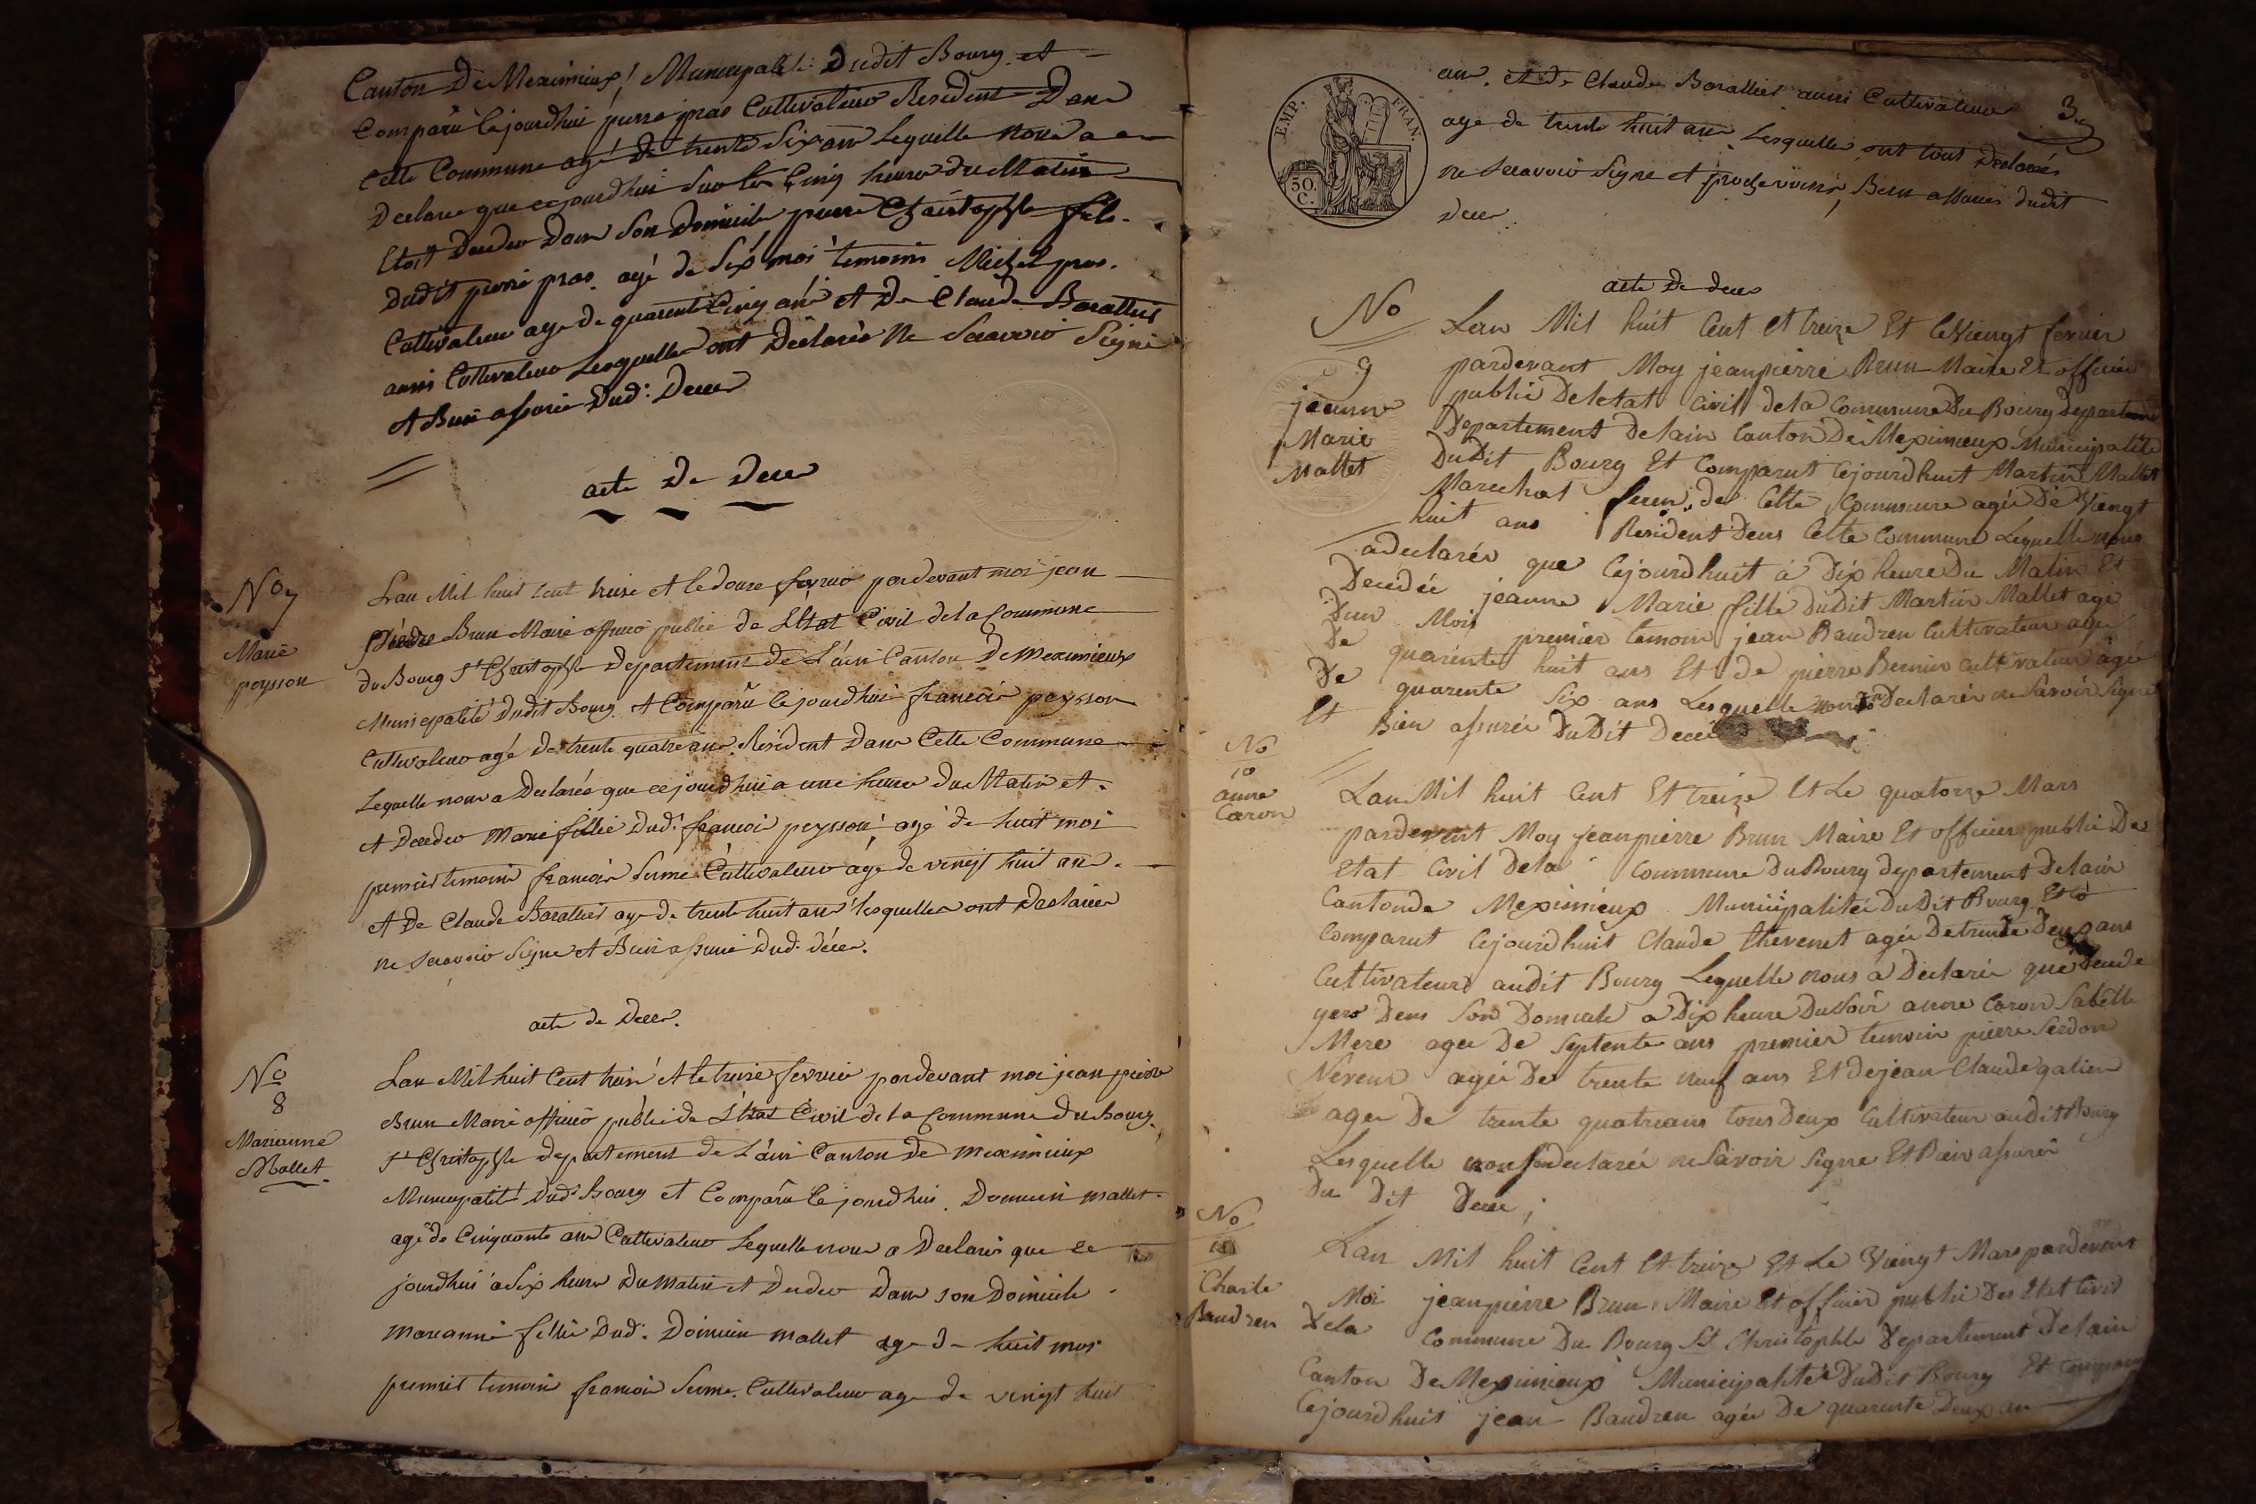 Canton De Meximieux, Municipalité Dudit Bourg et
Comparû Cejourdhui pierre pras Cultivateur Resident Dans
Cette Commune agé de trente Six ans Lequelle nous a
Declaré que cejourdhui Sur les Cinq heure du Matin
Etoit Decedé Dans Son Domicile pierre Christophle fils
Dudit pierre pras agé de Six moi temoins Michel pras
Cultivateur age de quarente Cinq ans et De Claude Baratlier
aussi Cultivateur Lesquelles ont Declarés Ne Scavoir Signe
et Bien assurée Dud: Deces
acte De Deces
No 7
Marie
peysson
Lan Mil huit Cent treize et le douze fevrier pardevant moi jean
pierre Brun Maire officier public de L'Etat Civil de la Commune
du Bourg St Christophle departement de L'ain Canton De Meximieux
Municipalité dudit Bourg et Comparû Cejourdhui francois peysson
Cultivateur agé De trente quatre ans Resident Dans Cette Commune
Lequelle nous a Declarée que cejourdhui a une heure du Matin et
et Decedée Marie fillie Dud: francois peysson agé de huit moi
premier temoins francois Serme Cultivateur agé de vingt huit ans
et De Claude Baratlier age de trente huit ans lesquelles ont Declarée
ne Scavoir Signe et Bien assurée Dud: déces.
acte de Deces.
No
8
Marianne
Mallet
Lan Mil huit Cent treize et le treize fevrier pardevant moi jean pierre
Brun Maire officier public de L'Etat Civil de la Commune du bourg
St Christophle departement de L'ain Canton de meximieux
Municipalité Dud: bourg et Comparû Cejourdhui Dominii mallet
agé de Cinquante ans Cultivateur Lequelle nous a Declarés que ce
jourdhui a Six heure Du Matin et Decedée Dans son Domicile
marianne fillie Dud: Dominii mallet age de huit moi
premier temoins francois Serme Cultivateur age de vingt huit
EMP. FRAN.
50.
C.
3
ans. et de Claude Baratlier aussi Cultivateur
age de trente huit ans Lesquelles ont tous Declarés
ne Scavoir Signe et Bien assurés dudit
Deces.
acte De deces
No
9
jeanne
Marie
Mallet
Lan Mil huit Cent Et treize Et le Viengt fevrier
pardevant Moy jeanpierre Brun Maire Et officier
public De letat Civil dela Commune Du Bourg
Departement delain Canton De Meximieux Municipalité
DuDit Bourg Et Comparut Cejourdhuit Martin Mallet
Marechal de Cette Commune agée De Viengt
huit ans Resident Dens Cette Commune Lequelle nous
adeclarée que Cejourdhuit á Dix heure Du Matin Et
Decedée jeanne Marie fille DuDit Martin Mallet age
Dun Mois premier temoin jean Baudren Cultivateur age
De quarente huit ans Et de pierre Bernin Cultivateur agée
De quarente Six ans Lesquelle Declarée ne Savoir Signe
Et Bien assurée DuDit Decé
No
10
anne
Caron
Lan Mil huit Cent Et treize Et Le quatorze Mars
pardevant Moy jeanpierre Brun Maire Et officier public De
Etat Civil Dela Commune DuBourg departement Delain
Cantonde Meximieux Municipalitée DuDit Bourg Et
Comparut Cejourdhuit Claude thevenet agée De trente Deux ans
Cultivateur audit Bourg Lequelle nous a Declarée que
yers Dens Son Domicile a Dix heure DuSoir anne Caron Sabelle
Mere agée De Septente ans premier temoin pierre
Neveur agée De trente neuf ans Et dejean Claude galien
agée De trente quatreans tous Deux Cultivateur audit Bourg
Lesquelle Declarée ne Savoir Signe Et Bien assurée
Du Dit Deces
No
Charle
Baudren
Lan Mil huit Cent Et treize Et Le Viengt Mars pardevent
Moi jeanpierre Brun Maire Et officier public Des Etat Civil
Dela Commune Du Bourg St Christophle Departement Delain
Canton De Meximieux Municipalitée DuDit Bourg Et
Cejourdhuit jean Baudren agée De quarente Deux an